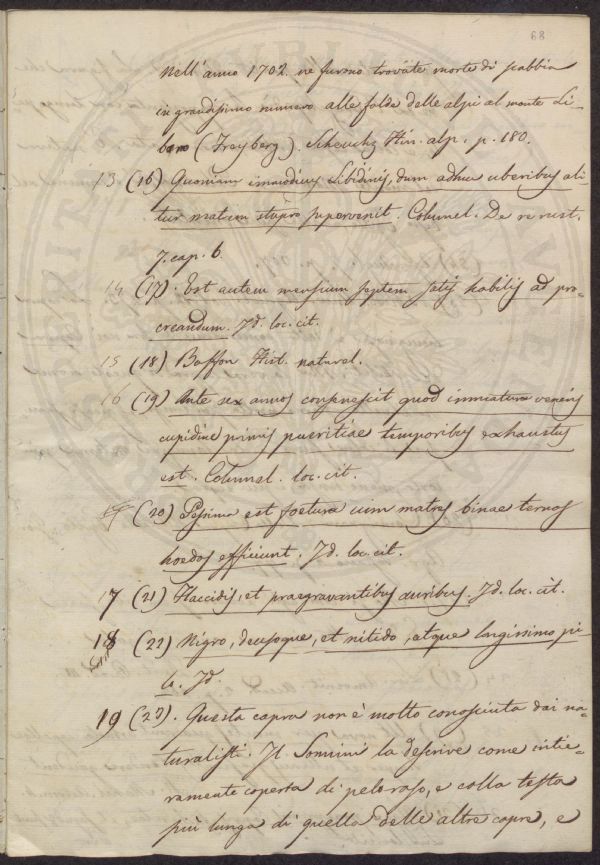 68
Nell'anno 1702. ne furono trovate morte di scabbia
in grandissimo numero alle falde delle alpi al monte Li-
bano (Freyberg). Scheuchz Itin. alp. p. 180.
13 (16) Quoniam immodicus libidinis, dum adhuc uberibus ali-
tur matrem stupro supervenit. Columel. De re rust.
7. cap. 6.
14 (17). Est autem mensium septem satis habilis ad pro-
creandum. Id. loc. cit.
15 (18) Buffon Hist. natural.
16 (19) Ante sex annos consenescit quod inmatura veneris
cupidine primis pueritiae temporibus exhaustus
est. Columel. loc. cit.
(20) Pessima est foetura cum matres binae ternos
hoedos efficiunt. Id. loc. cit.
17 (21) Flaccidis, et praegravantibus auribus. Id. loc. cit.
18 (22) Nigro, densoque, et nitido, atque longissimo pi-
lo. Id.
19 (23). Questa capra non è molto conosciuta dai na-
turalisti. Il Sonnini la descrive come intie-
ramente coperta di pelo raso, e colla testa
più lunga di quella delle altre capre, e